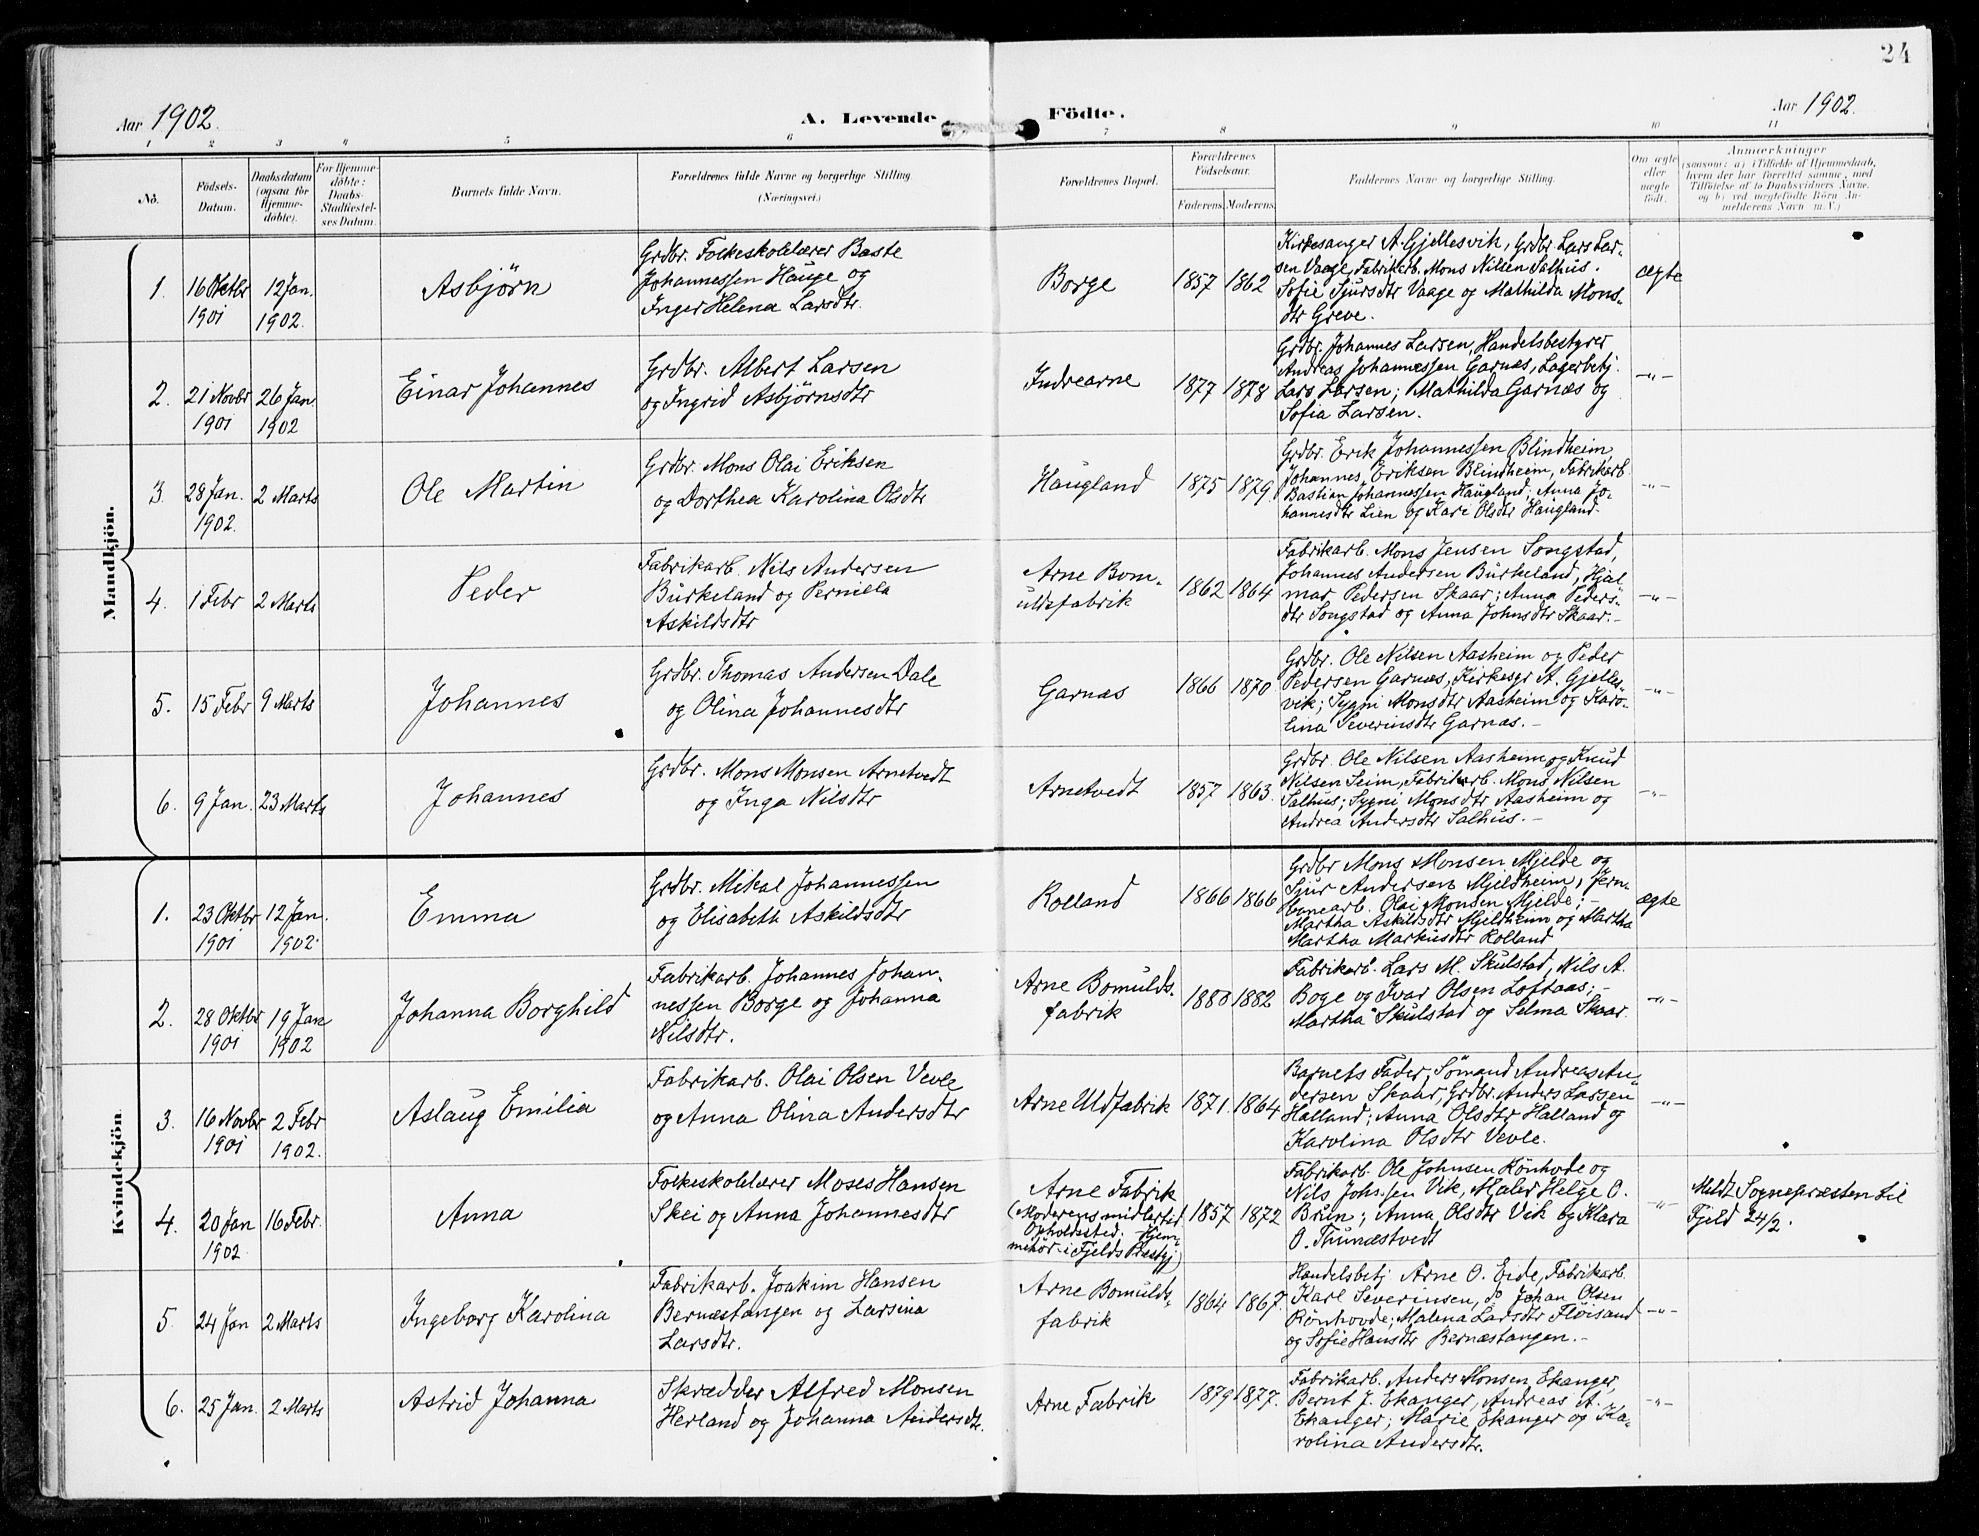 24
Aar 1902.
A. Levende
Födte.
Aar 1902.
1 2 3 4 5 6 7 8 9 10 11
No.
Födsels-
Datum.
Daabsdatum
(ogsaa for
Hjemme-
döbte).
For Hjemme-
döbte:
Daabs-
Stadfæstel-
ses Datum.
Barnets fulde Navn.
Forældrenes fulde Navne og borgerlige Stilling.
(Næringsvei.)
Forældrenes Bopæl.
Forældrenes
Födselsaar.
Faderens. Moderens.
Faddernes Navne og borgerlige Stilling.
Om ægte
eller
uægte
födt.
Anmærkninger
(saasom: a) i Tilfælde af Hjemmedaab,
hvem der har forrettet samme, med
Tilföielse af to Daabsvidners Navne.
og b) ved uægtefödte Börn An-
melderens Navn m. V.)
Mandkjön.
1.
16 Oktbr
1901
12 Jan.
1902.
Asbjörn
Grdbr. Folkeskolelærer Baste
Johannessen Hauge og
Inger Helena Larsdtr.
Borge
1857 1862
Kirkesanger A. Gjellesvik, Grdbr. Lars Lar-
sen Vaage, Fabrikarb. Mons Nilsen Salhus.
Sofie Sjursdtr Vaage og Mathilda Mons-
dtr Greve.
ægte
2.
21 Novbr
1901
26 Jan.
1902
Einar Johannes
Grdbr. Albert Larsen
og Ingrid Asbjörnsdtr
Indrearne
1877 1878
Grdbr. Johannes Larsen, Handelsbestyrer
Andreas Johannessen Garnæs, Lagerbetj.
Lars Larsen; Mathilda Garnæs og
Sofia Larsen.
-"-
3.
28 Jan.
1902.
2 Marts
Ole Martin
Grdbr. Mons Olai Eriksen
og Dorthea Karolina Olsdtr
Haugland
1875 1879
Grdbr. Erik Johannessen Blindheim,
Johannes Eriksen Blindheim, Fabrikarb.
Bastian Johannessen Haugland; Anna Jo-
hannesdtr Lien og Kari Olsdtr Haugland.
-"-
4.
1 Febr
2 Marts
Peder
Fabrikarb. Nils Andersen
Burkeland og Pernilla
Askildsdtr
Arne Bom-
uldsfabrik
1862 1864
Fabrikarb. Mons Jensen Songstad,
Johannes Andersen Burkeland, Hjal
mar Pedersen Skaar; Anna Peders-
dtr Songstad og Anna Johnsdtr Skaar.-
-"-
5.
15 Febr
9 Marts
Johannes
Grdbr. Thomas Andersen Dale
og Olina Johannesdtr
Garnæs
1866 1870
Grdbr. Ole Nilsen Aasheim og Peder
Pedersen Garnæs, Kirkesgr A. Gjelles-
vik; Sygni Monsdtr Aasheim og Karo-
lina Severinsdtr Garnæs.-
-"-
6.
9 Jan.
23 Marts
Johannes
Grdbr. Mons Monsen Arnetvedt
og Inga Nilsdtr
Arnetvedt
1857 1863.
Grdbr. Ole Nilsen Aasheim og Knud
Nilsen Seim, Fabrikarb. Mons Nilsen
Salhus; Sygni Monsdtr Aasheim og
Andrea Andersdtr Salhus.-
-"-
Kvindekjön.
1.
23 Oktbr
1901
12 Jan.
1902.
Emma
Grdbr. Mikal Johannessen
og Elisabeth Askildsdtr
Rolland
1866 1866
Grdbr Mons Monsen Mjelde og
Sjur Andersen Mjeldheim, Jern-
banearb. Olai Monsen Mjelde;
Martha Askildsdtr Mjeldheim og Martha
Martha Markusdtr Rolland
ægte
2.
28 Oktbr
1901
19 Jan
1902
Johanna Borghild
Fabrikarb. Johannes Johan-
nessen Borge og Johanna
Nilsdtr.
Arne Bomulds-
fabrik
1882
Fabrikarb. Lars M. Skulstad, Nils A.
Boge og Ivar Olsen Loftaas;-
Martha Skulstad og Selma Skaar.
-"-
3.
16 Novbr
1901
2 Febr
1902.
Aslaug Emilia
Fabrikarb. Olai Olsen Vevle
og Anna Olina Andersdtr
Arne Uldfabrik
1871. 1864
Barnets Fader, Sömand Andreas An-
dersen Skaar, Grdbr. Anders Larsen
Halland; Anna Olsdtr Halland og
Karolina Olsdtr Vevle.
-"-
4.
20 Jan
1902.
16 Febr.
Anna
Folkeskolelærer Moses Hansen
Skei og Anna Johannesdtr
Arne Fabrik
(Moderens midlertid.
Opholdssted. Hjem-
mehör i Fjelds Præstgj)
1857 1872
Fabrikarb. Ole Johnsen Rönhovde og
Nils Johs.sen Vik, Maler Helge O.
Brun; Anna Olsdtr Vik og Klara
O. Tunæstvedt
-"-
Meldt Sognepræsten til
Fjeld 24/2.
5.
24 Jan
2 Marts
Ingeborg Karolina
Fabrikarb. Joakim Hansen
Bernæstangen og Larsina
Larsdtr.
Arne Bomulds-
fabrik
1864 1867.
Handelsbetj Arne O. Eide, Fabrikarb.
Karl Severinsen, Johan Olsen
Rönhovde; Malena Larsdtr Flöisand
og Sofie Hansdtr Bernæstangen.-
-"-
6.
25 Jan.
2 Marts
Astrid Johanna
Skrædder Alfred Monsen
Herland og Johanna Andersdtr.
Arne Fabrik
1879 1877.
Fabrikarb. Anders Monsen Ekanger,
Bernt J. Ekanger, Andreas A.
Ekanger; Marie Ekanger og Ka-
rolina Andersdtr.
-"-